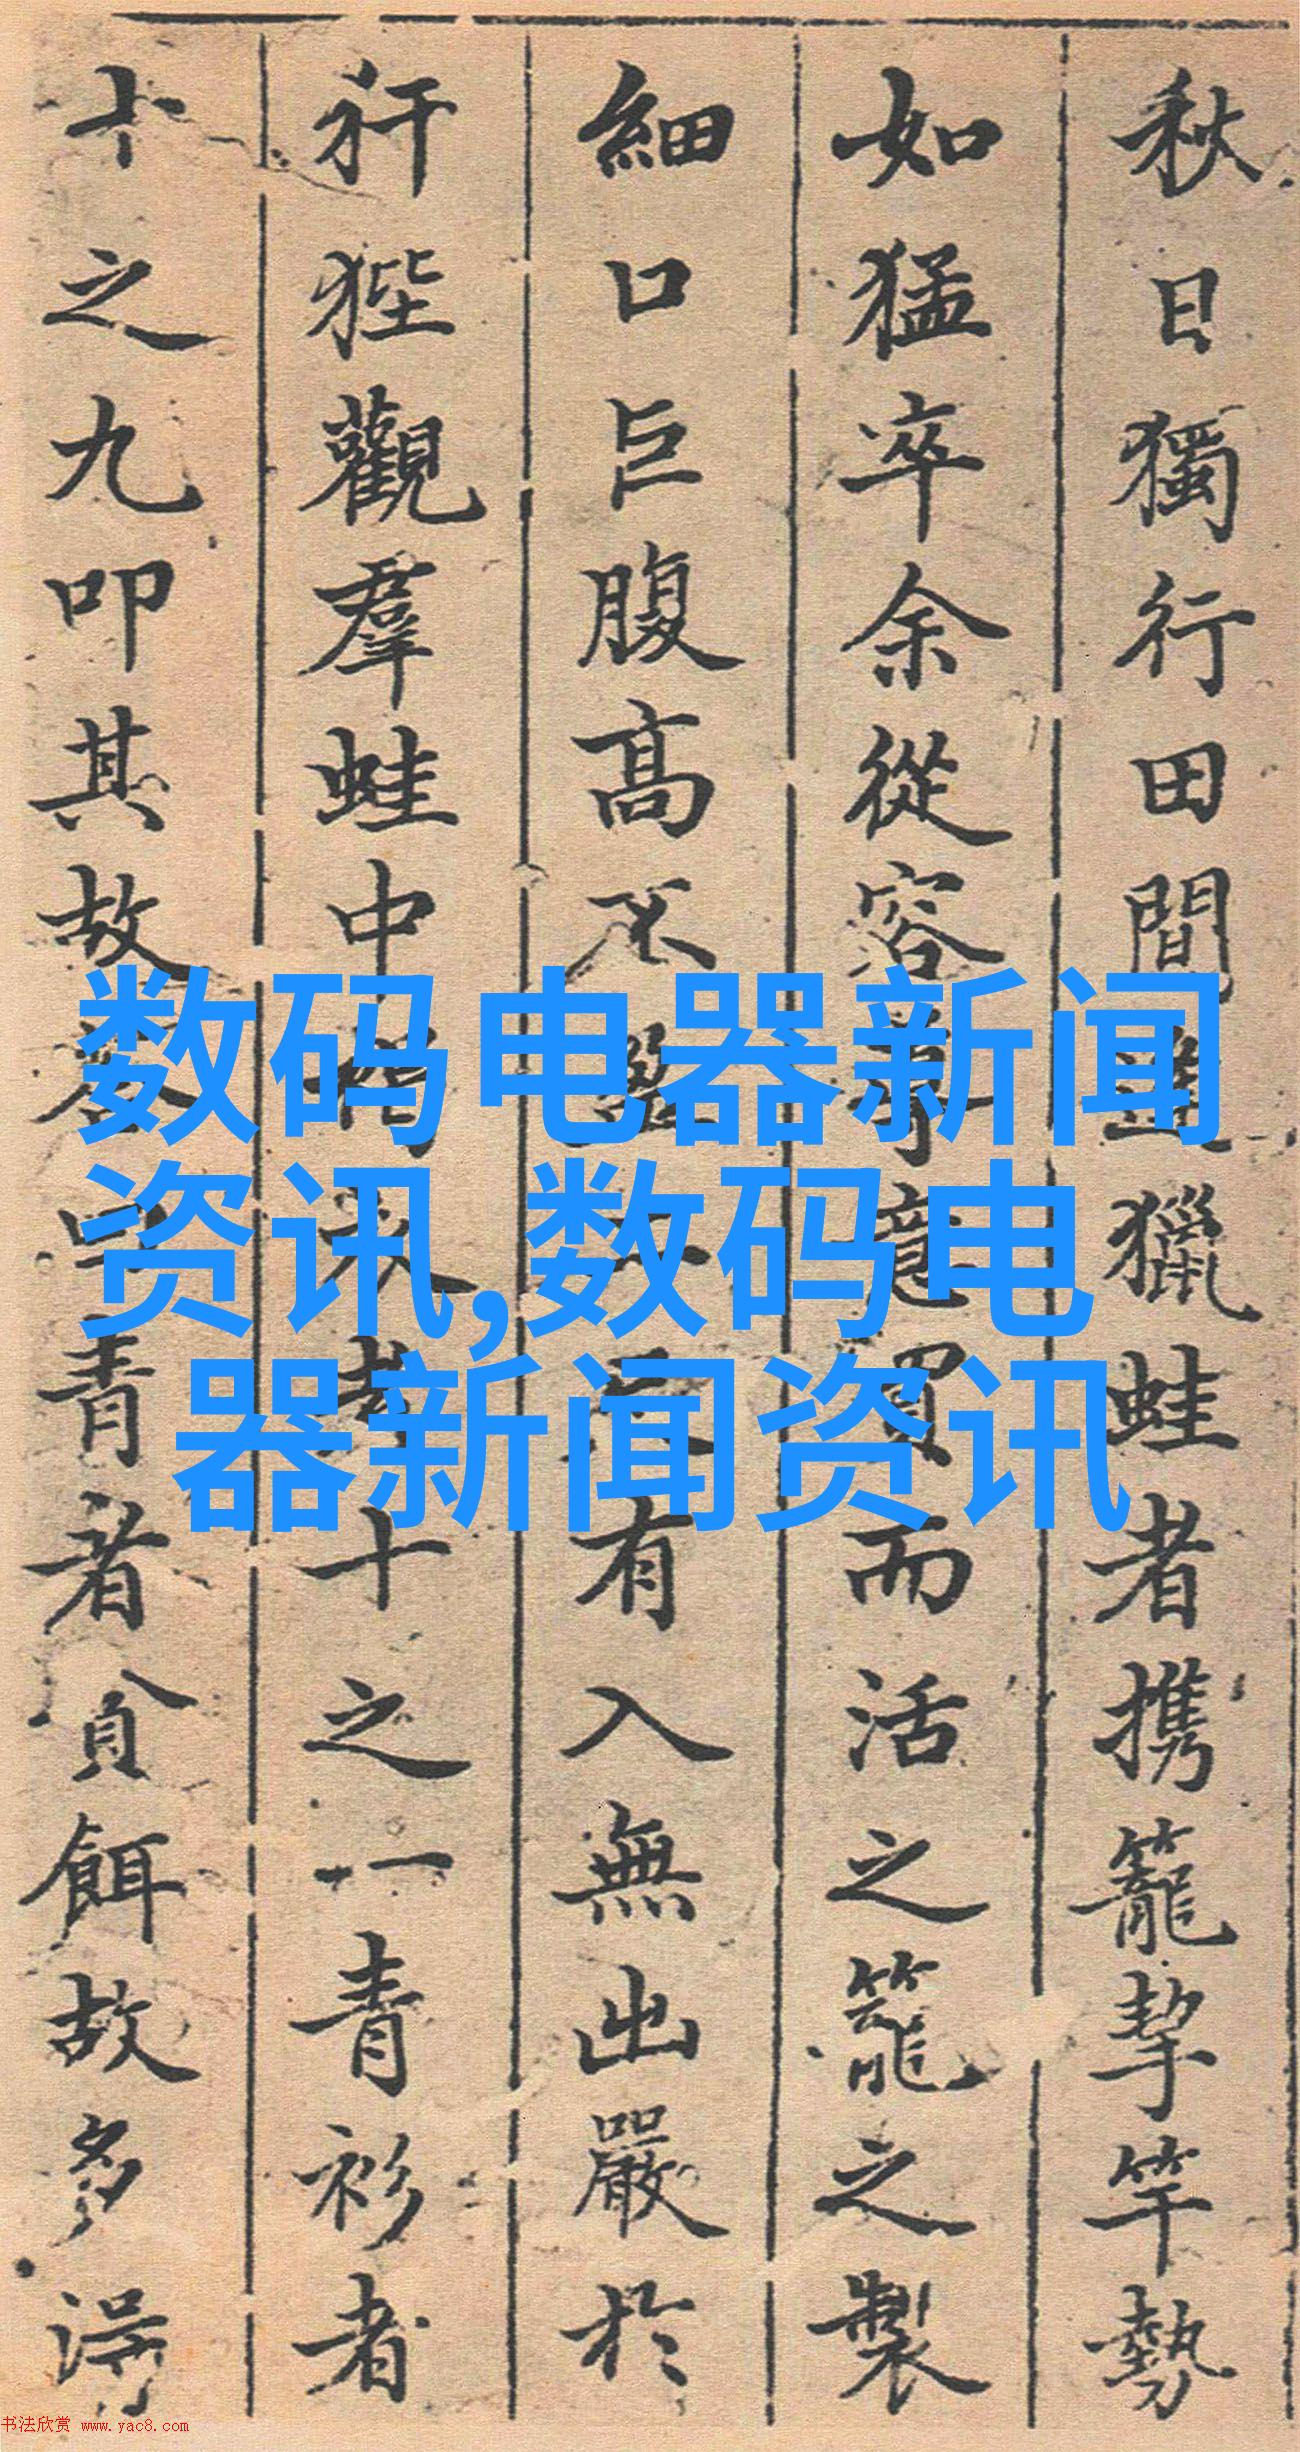 秋日獨行田間遇獵蛙者携籠挈竿勢
如猛卒余從容尊意買而活之籠之製
細口巨腹高不盈有入無出嚴於
犴狴觀羣蛙中十之一青衫者
十之九叩其故答曰青者貪餌故多得
数码电器新闻
资讯,数码电
器新闻资讯
书法欣赏 www.yac8.com